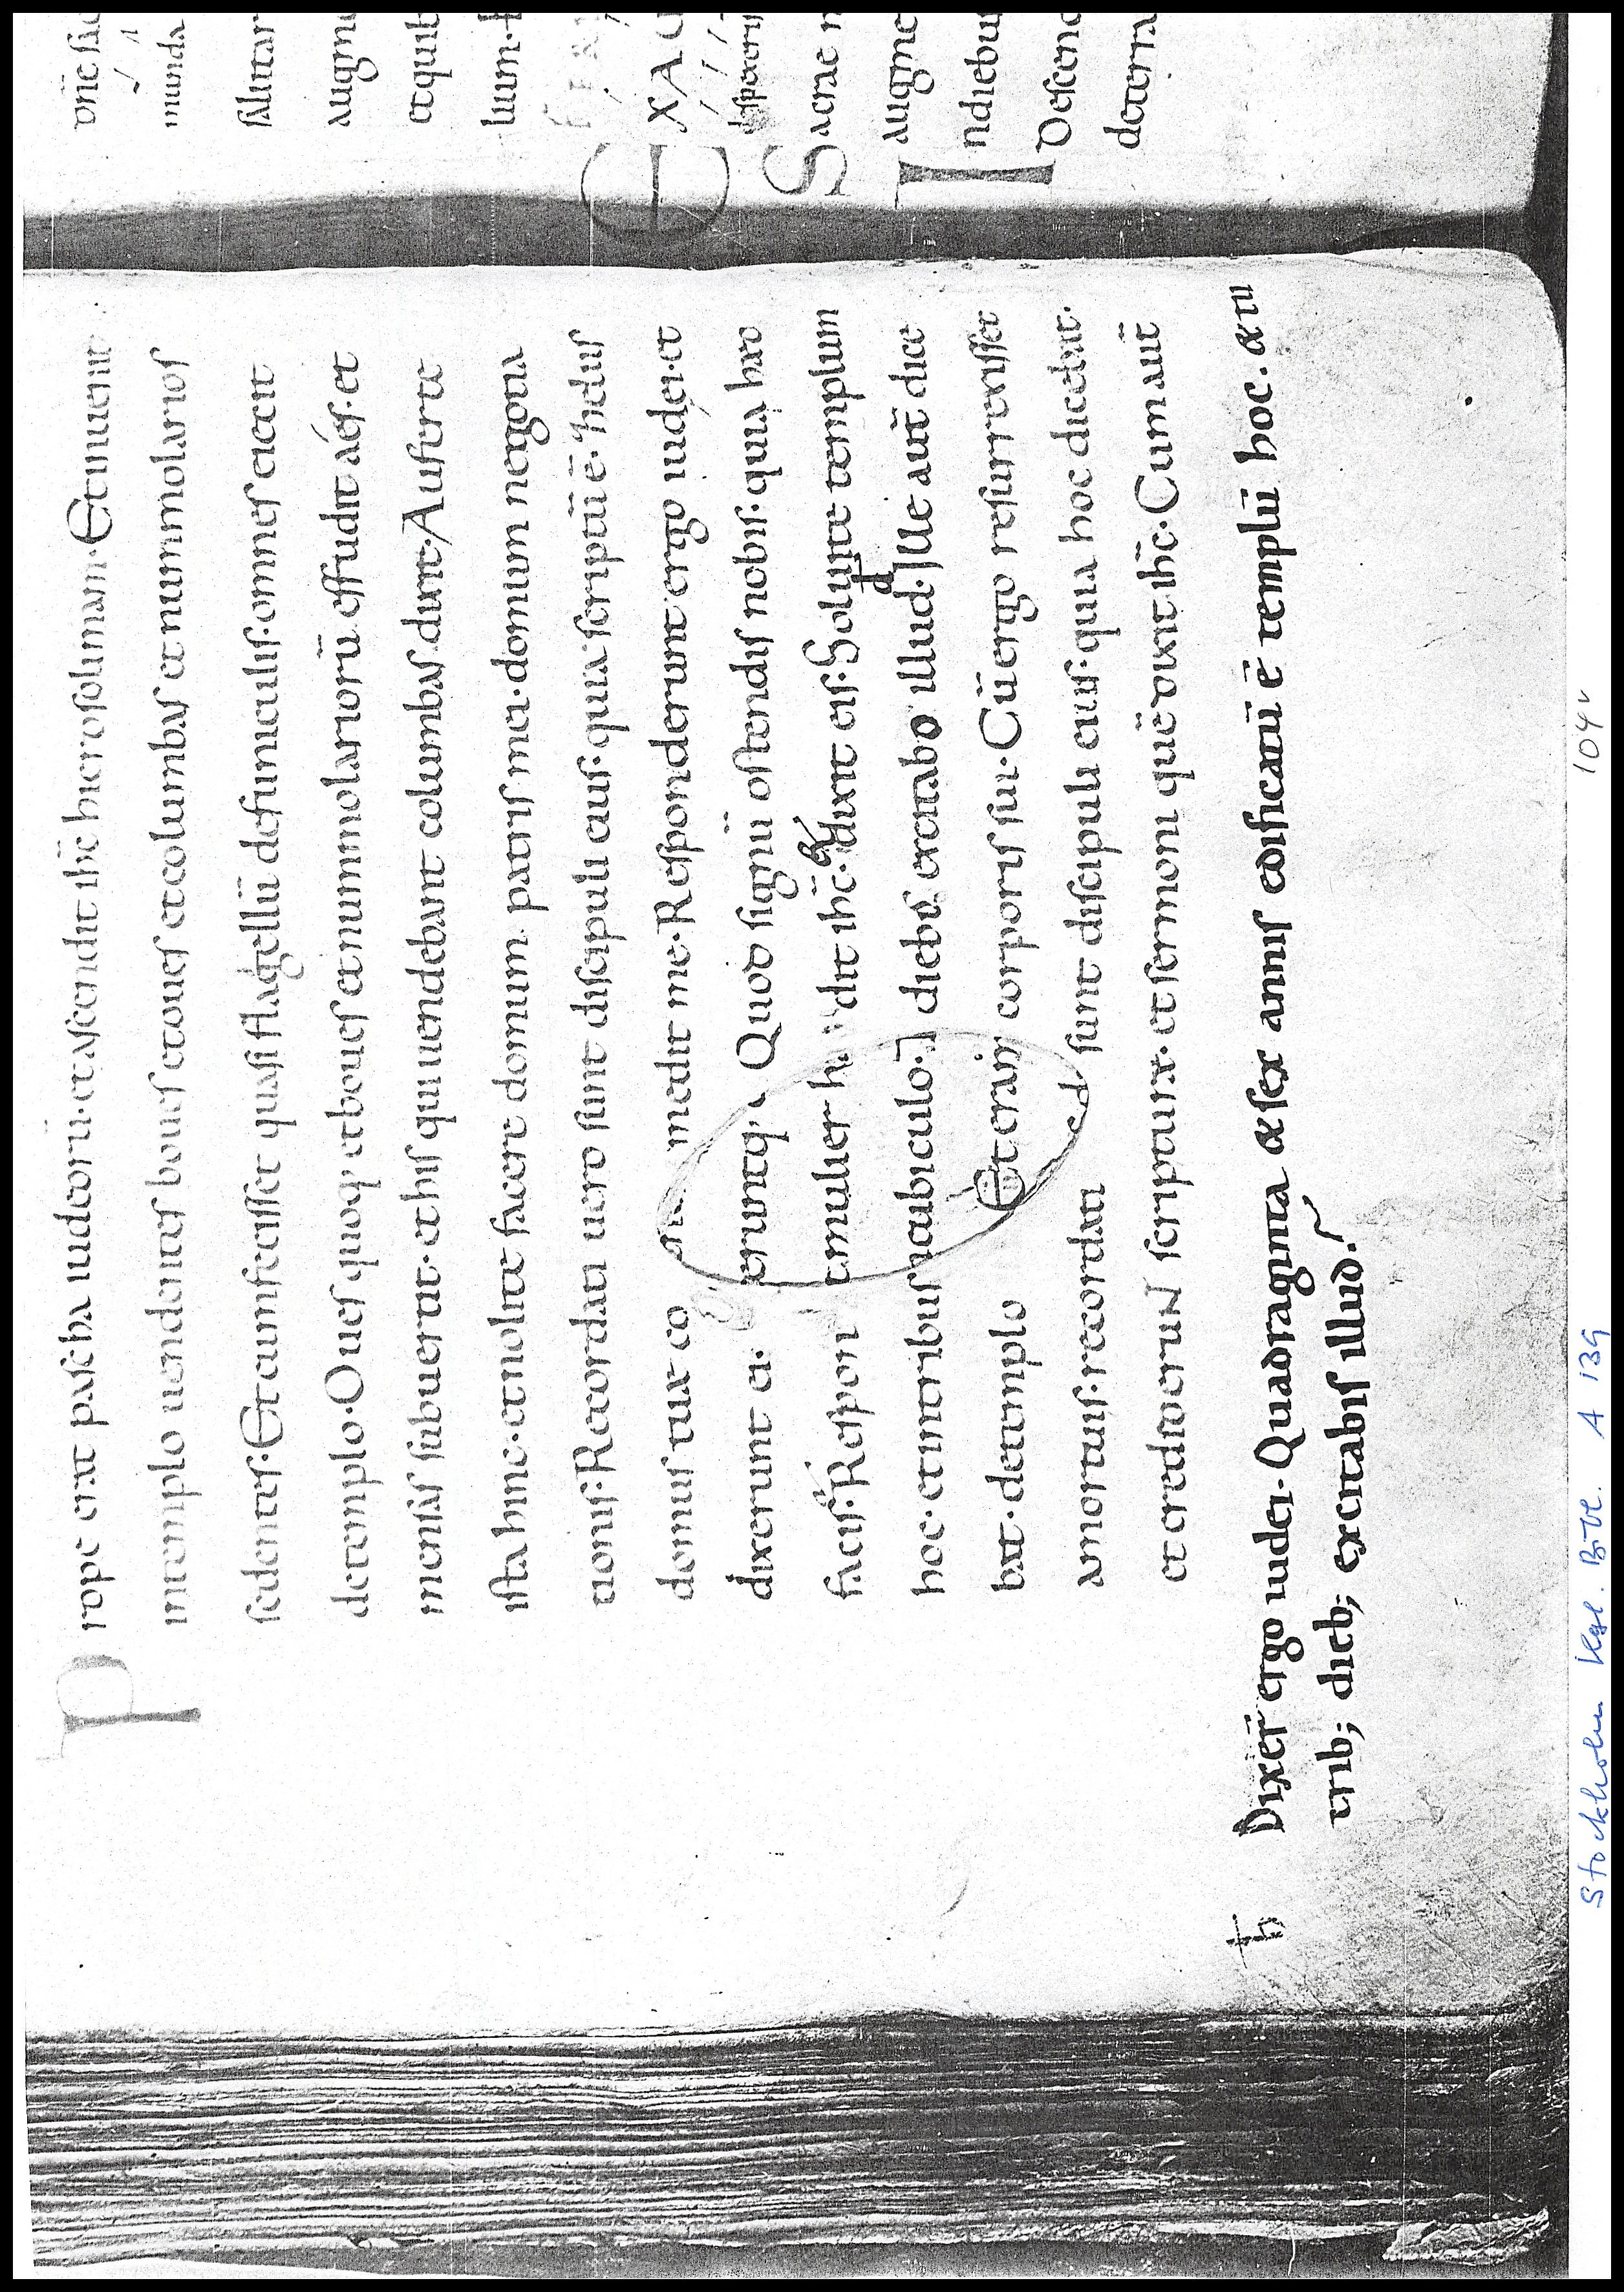 Prope erat pascha iudeorū· et ascendit ihc̄ hierosolimam· Et inuenit
in templo uendentes boues et oues et columbas et nummolarios
sedentes· Et cum fecisset quasi flagellū de funiculis· omnes eiecit
de templo· Oues quoq; et boues et nummolariorū effudit aés· et
mensas subuertit· et his qui uendebant columbas dixit· Auferte
ista hinc· et nolite facere domum patris mei· domum negotia
tionis· Recordati uero sunt discipuli eius· quia scriptū ē· Zelus
domus tuae co medit me· Responderunt ergo iudei· et
dixerunt ei· eruntq; Quod signū ostendis nobis· quia haec
facis· Respon mulier dit ihc̄· & dixit eis· Soluite templum
hoc· et in tribus in cubiculo· diebus excitabo illud· Ille aut̄ dice
bat· de templo Et erant corporis sui· Cū ergo resurrexisset
a mortuis· recordati sunt discipuli eius· quia hoc dicebat·
et crediderunt scripturae· et sermoni quē dixit ihc̄· Cum aut̄
ħ Dixer̄ ergo iudei· Quadraginta & sex annis edificatū ē templū hoc· & tu
trib; dieb; excitabis illud?
munda
salutar
augm
et quit
EXAU
Sacrae
augme
In diebu
Descend
de terra
Stockholm Kgl. Bibl. A 139 104v